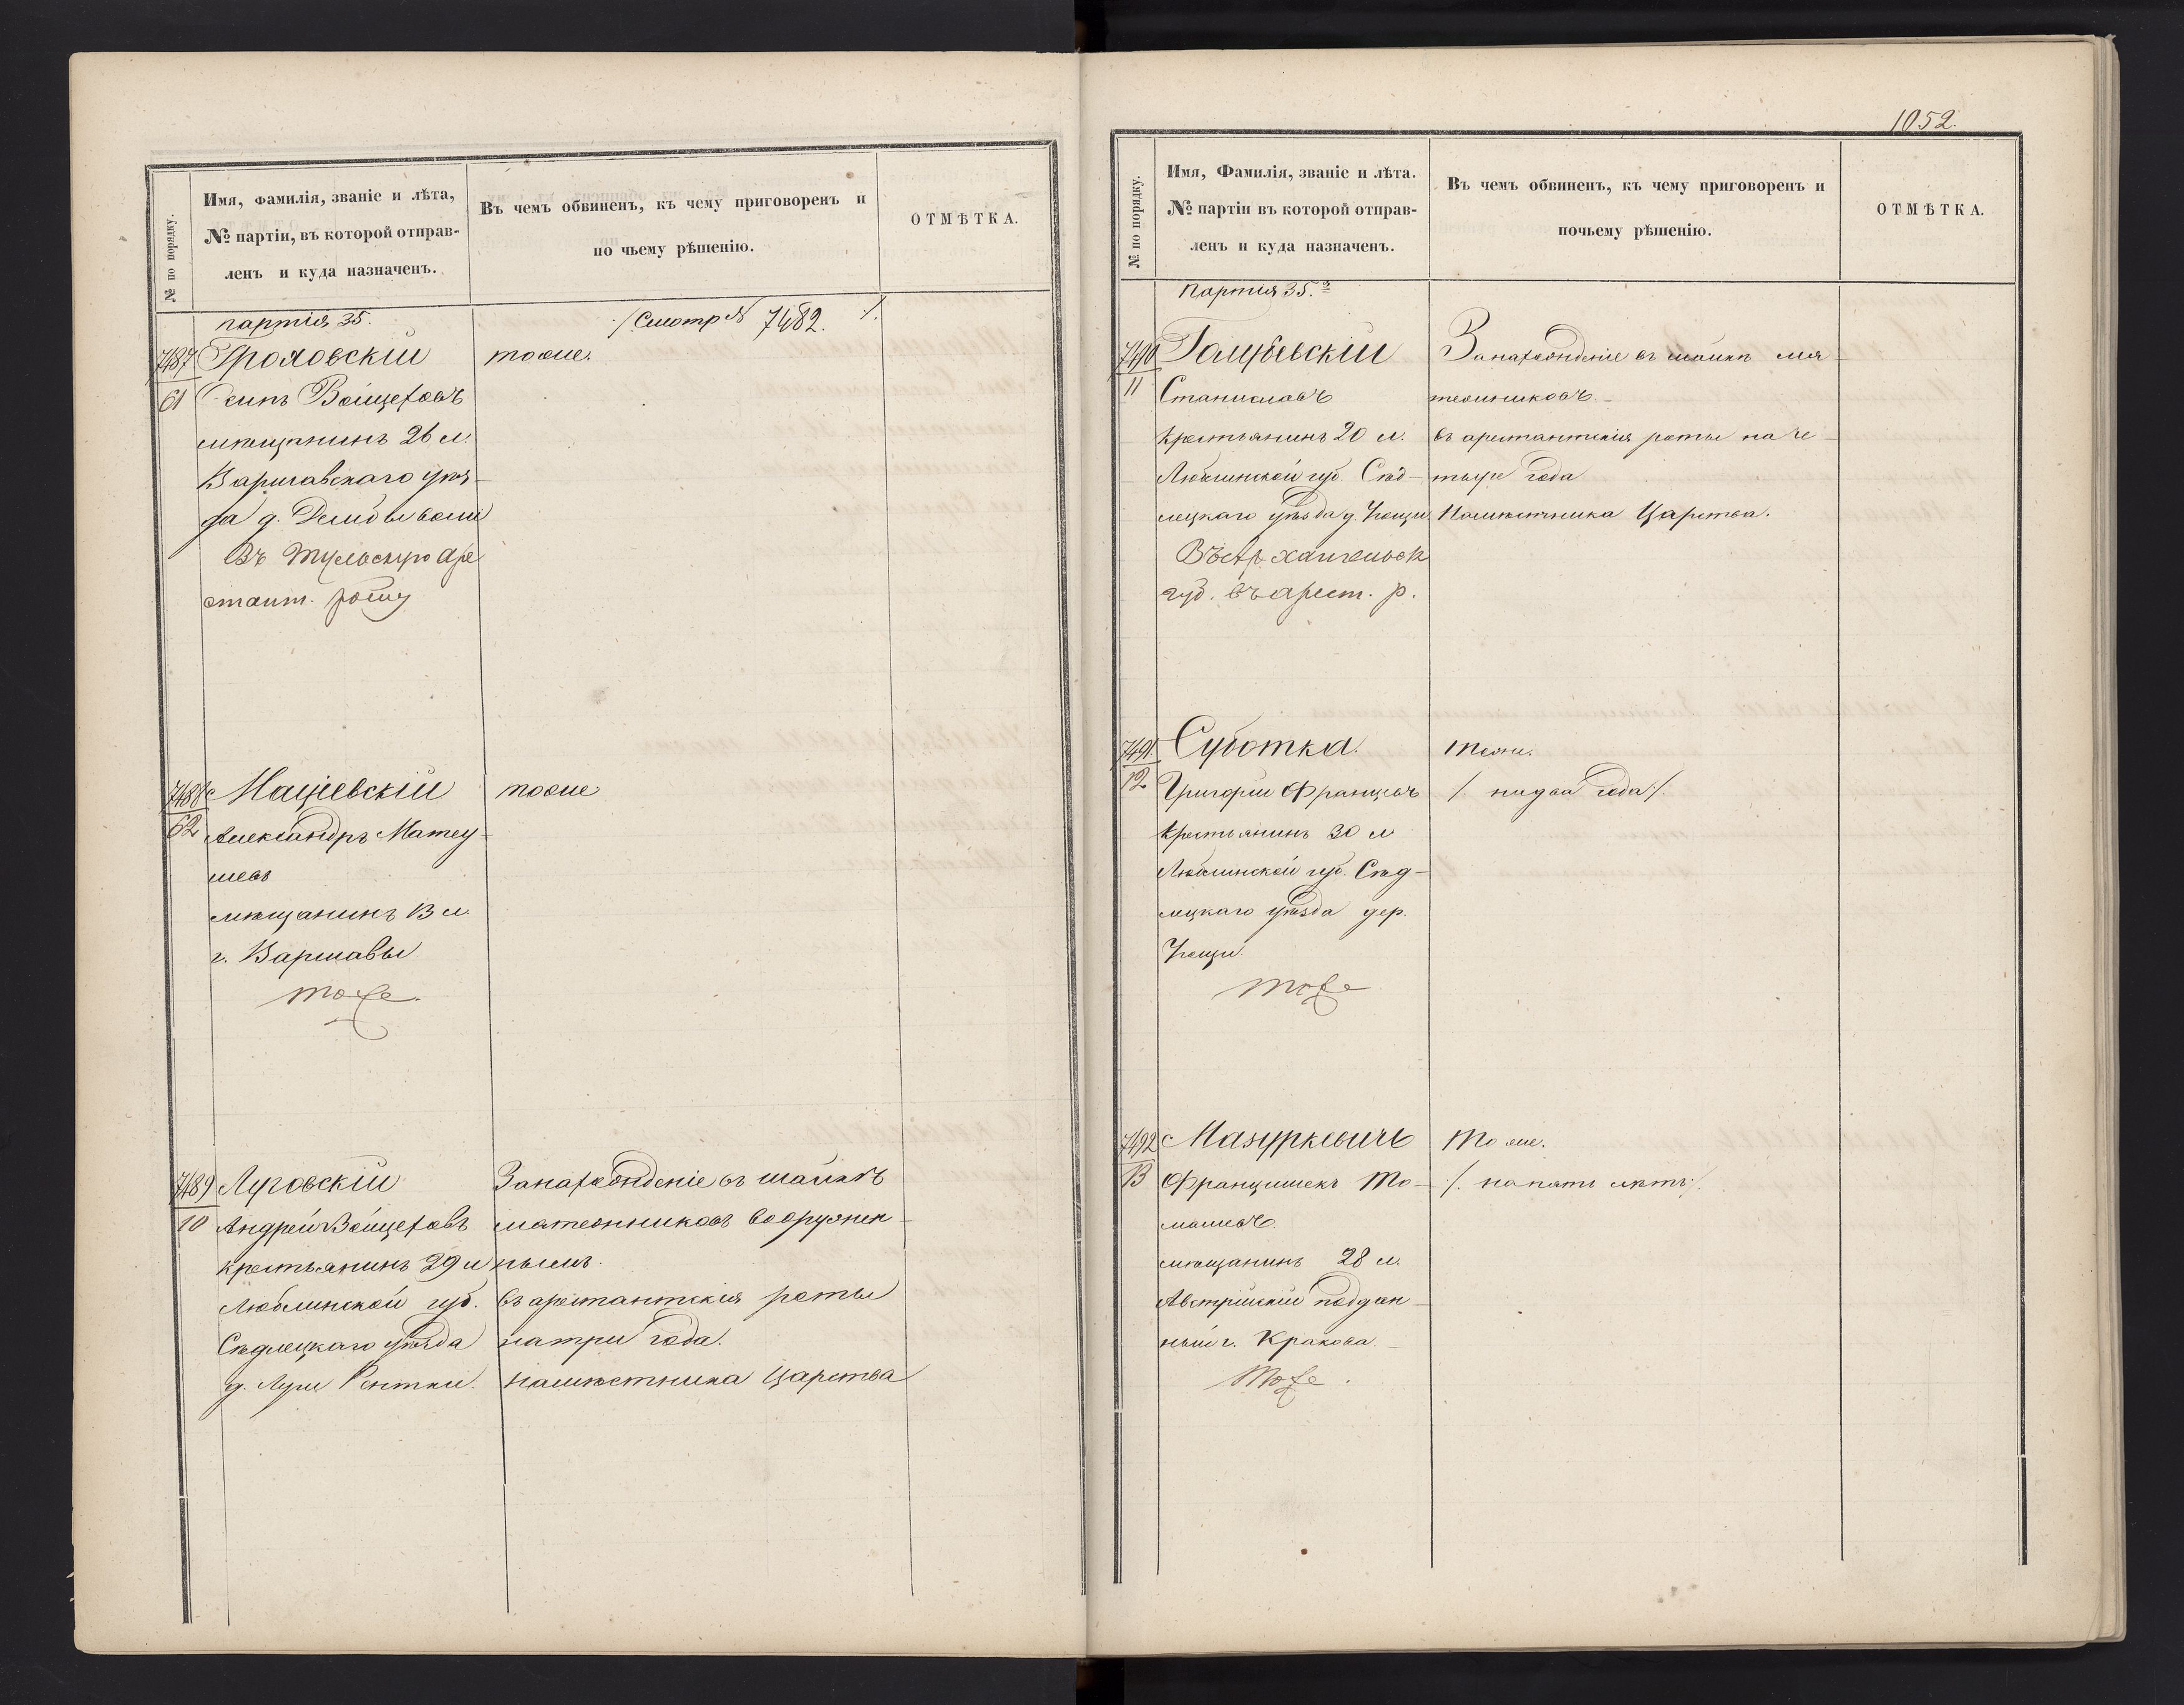 № по порядку.
Имя, Фамилія, званіе и лѣта,
№ партіи, въ которой отправ-
ленъ и куда назначенъ.
Въ чемъ обвиненъ, къ чему приговоренъ и
по чьему рѣшенію.
ОТМѢТКА.
партія 35.
/. Смотр № 7482. /.
7487
61
Осипъ Войцеховъ
мѣщанинъ 26 л.
Варшавскаго уѣз-
да д.
Въ Тульскую Аре
стант. роту
тоже.
7488
62
Маціевскій
Александръ Матеу-
шевъ
мѣщанинъ 13 л.
г. Варшавы
тоже.
тоже
7489
10
Луговскій
Андрей Войцеховъ
крестьянинъ 29 л
Люблинской губ.
Сѣдлецкаго уѣзда
д. Луги
За нахожденіе въ шайкѣ
мятежниковъ вооружен-
нымъ.
въ арестантскія роты
на три года.
Намѣстника Царства
1052.
№ по порядку.
Имя, Фамилія, званіе и лѣта.
№ партіи въ которой отправ-
ленъ и куда назначенъ.
Въ чемъ обвиненъ, къ чему приговоренъ и
почьему рѣшенію.
ОТМѢТКА.
Партия 35.
7490
11
Голубевскій
Станиславъ
крестьянинъ 20 л.
Люблинской губ. Сѣд-
лецкаго уѣзда д.
Въ Архангельск
губ. въ арест. р.
За нахожденіе въ шайкѣ мя-
тежниковъ.
въ арестантскія роты на че-
тыре года
Намѣстника Царства.
7491
12
Суботка.
Григорій Францевъ
крестьянинъ 30 л
Люблинской губ. Сѣд-
лецкаго уѣзда дер.
тоже
тоже.
/. на два года /.
7492
13
Мазуркевичъ
Францишекъ То-
машевъ.
мѣщанинъ 28 л.
Австрійскій поддан-
ный г. Кракова.
Тоже.
Тоже.
/. на пять лѣтъ /.